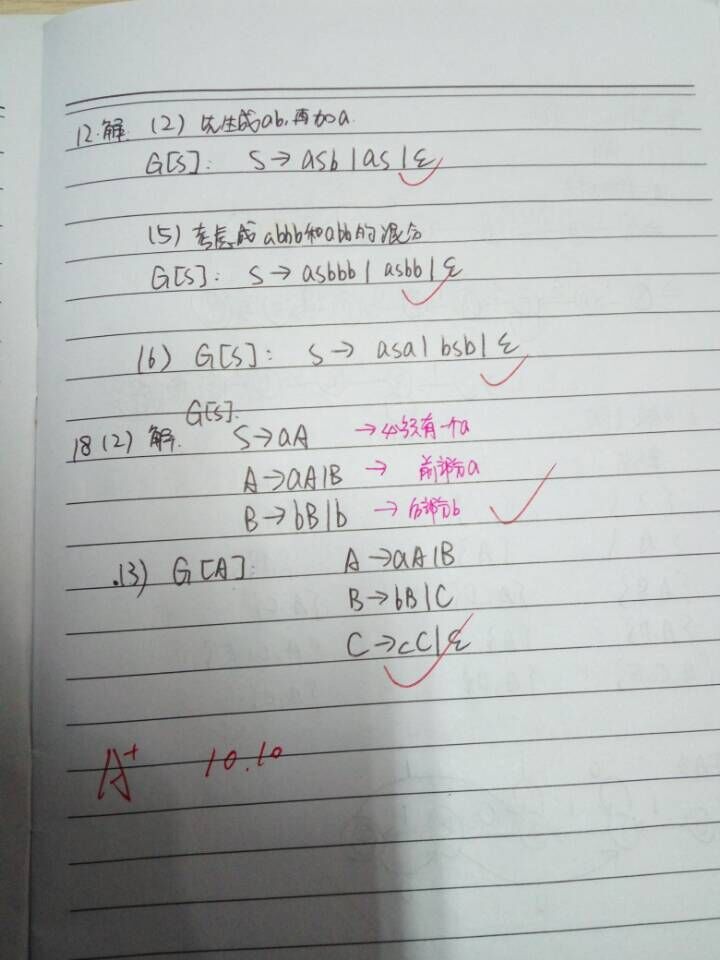 12.解. (2) 先生成ab,再加a.
G[S]: S→asb|as|ε
(5) 考虑成abbb和abb的混合
G[S]: S→asbbb|asbb|ε
(6) G[S]: S→asa|bsb|ε
G[S].
18(2) 解. S→aA →必须有一个a
A→aA|B → 前部分a
B→bB|b → 后部分b
.(3) G[A]: A→aA|B
B→bB|C
C→cC|ε
A+ 10.10